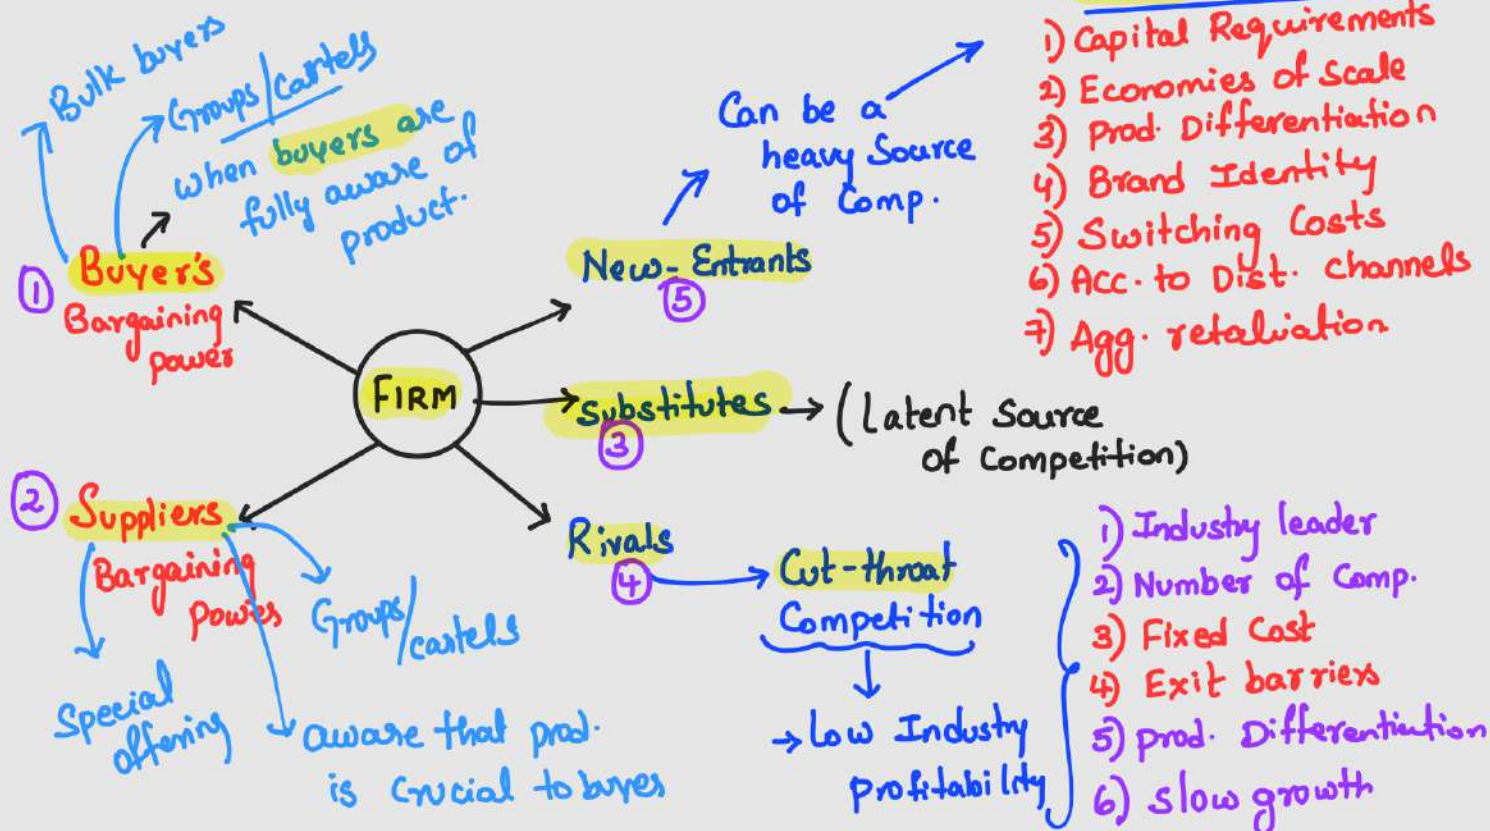 Bulk buyers
Groups/cartels
when buyers are
fully aware of
product.
① Buyer's
Bargaining
power
FIRM
② Suppliers
Bargaining
Powies
Groups/
cartels
Special
offering
aware that prod.
is crucial to buyes
New-Entrants
⑤
Can be a
heavy Source
of Comp.
1) Capital Requirements
2) Economies of Scale
3) Prod. Differentiation
4) Brand Identity
5) Switching Costs
6) Acc. to Dist. channels
7) Agg. retaliation
Substitutes
③
(Latent Source
of Competition)
Rivals
④
Cut-throat
Competition
Low Industry
profitability
1) Industry leader
2) Number of Comp.
3) Fixed Cost
4) Exit barriers
5) prod. Differentiation
6) slow growth